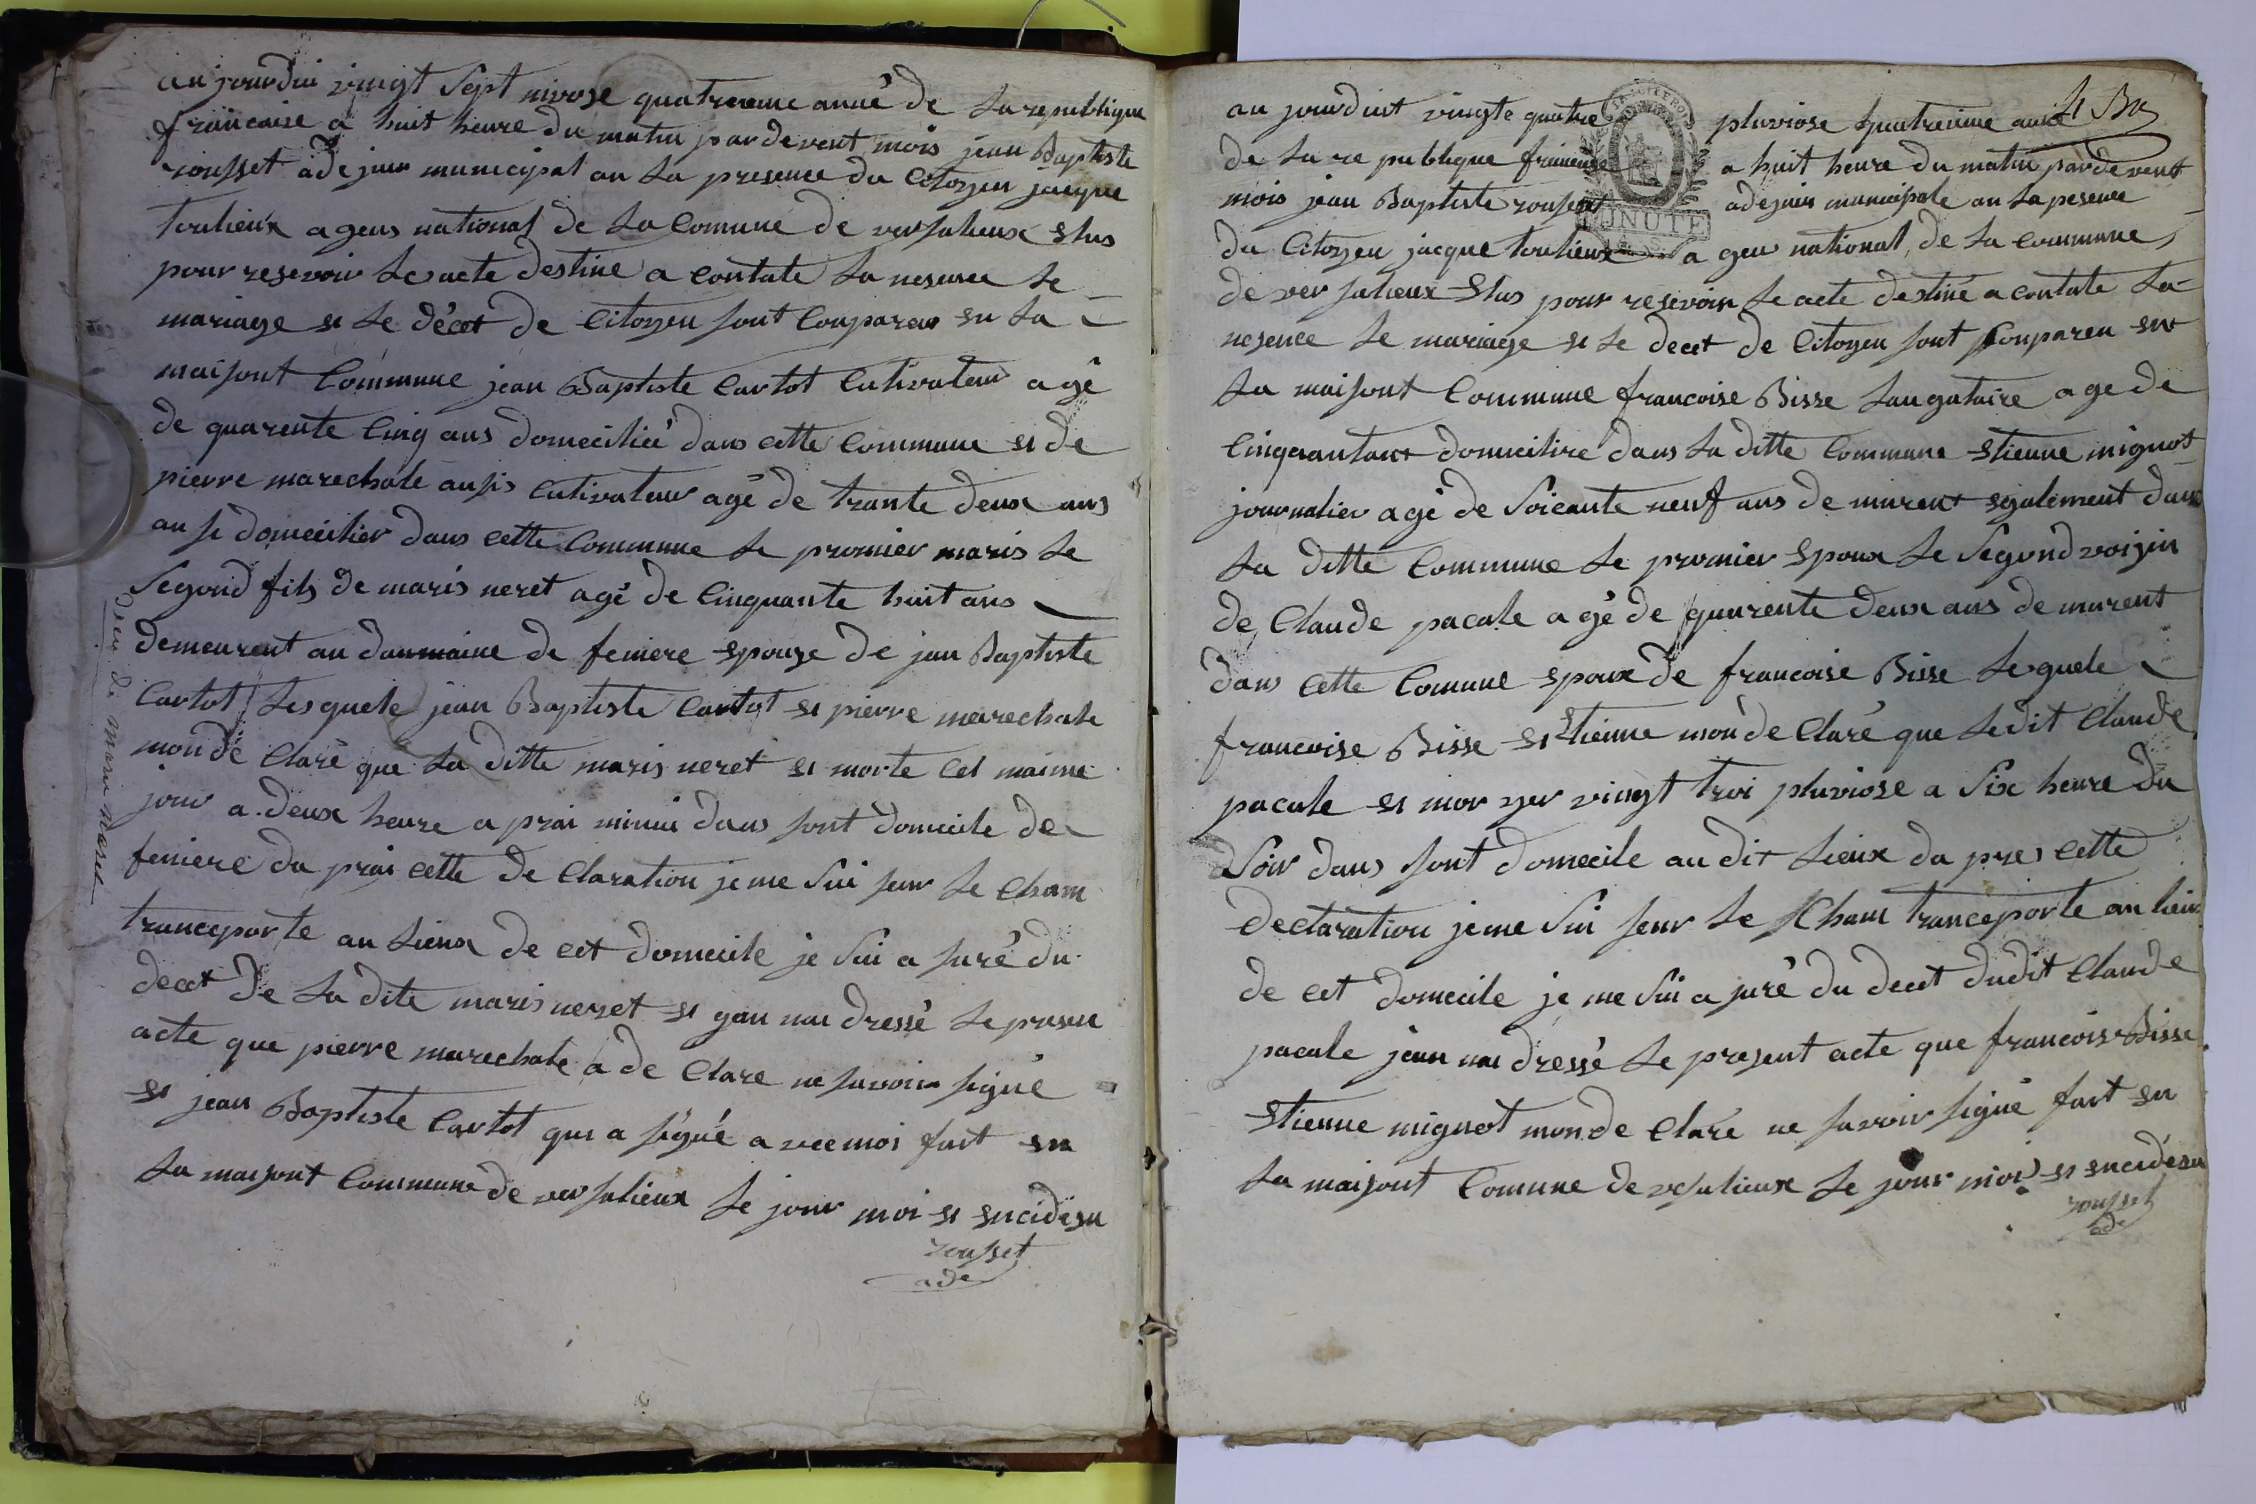 aujourdui vingt sept nivose quatrieme anné de la republique
francaise a huit heure du matin par devent mois jean Baptiste
rousset adejuin municipal an la presence du Citoyen jacque
toulieux agens national de la Comune de versalieux elus
pour resevoir le acte destine a contate la nesence le
mariage et le décet de Citoyen sont Conparens en la
maisont Commune jean Baptiste Cartot Cutivateur agé
de quarente Cinq ans domecilié dans cette Commune et de
pierre marechale ausis cutivateur agé de trante deux ans
ausi domecilier dans cette Commune le promier maris le
Segond fils de maris neret agé de Cinquante huit ans
demeurent au doumaine de feniere epouze de jan Baptiste
Cartot lesquele jean Baptiste Cartot et pierre marechale
mon dé Claré que la ditte maris neret et morte cet maime
jour a deux heure a prai minui dans sont domicile de
feniere da prai cette de Claration je me Sui seur le Cham
tranceporte au lieux de cet domecile je Sui a suré du
decet de la dite maris neret et gan nai dressé le presen
acte que pierre marechale a de Clare ne savoir signé
et jean Baptiste Cartot qui a signé a vec moi fait en
la maisont Commune de versalieux le jour moi et en cidesu
rousset
ade
Dece de marie neret
H Bo
au jourduit vingte quatre pluviose quatrieme anné
de la re publique francaise a huit heure du matin pardevent
mois jean Baptiste rousset adejuin municipale an la pesence
du Citoyen jacque toulieux a gen national de la Commune
de ver salieux elus pour resevoir le acte destiné a contate la
nesence le mariage et le decet de Citoyen sont Conparen en
la maisont Commune francoise Bisse sangataire age de
Cinquantant domicilire dans la ditte Commune etienne mignot
journalier agé de Soicante neuf ans de murent egalement dans
la ditte Commune le promier epoux le Segond voizin
de Claude pacale agé de quarente deux ans de murent
dans cette Comune epoux de francoise Bisse lequele
francoise Bisse et Etienne mon dé Claré que ledit Claude
pacale et mor yer vingt troi pluviose a Six heure du
Soir dans sont domecile au dit lieux da pres cette
declaration je me Sui seur le Cham tranceporte au lieu
de cet domecile je me Sui a suré du decet dudit Claude
pacale jean nai dressé le present acte que francois Bisse
etienne mignot mon de Claré ne savoir signé fait en
la maisont Comune de vesalieux le jour moi et en cidesu
rousset
ade
MINUTE